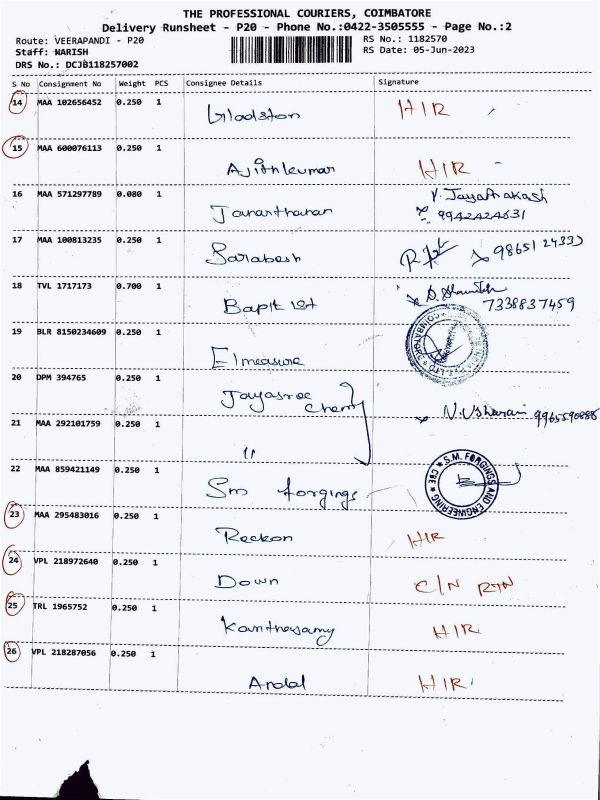 THE PROFESSIONAL COURIERS, COIMBATORE
Delivery Runsheet - P20 - Phone No.:0422-3505555 - Page No.:2
Route: VEERAPANDI - P20 RS No.: 1182570
Staff: HARISH RS Date: 05-Jun-2023
DRS No.: DCJB118257002
S No Consignment No Weight PCS Consignee Details Signature
14 MAA 102656452 0.250 1 Gladston HIR
15 MAA 600076113 0.250 1 Ajithkumar HIR
16 MAA 571297789 0.080 1 Jananthanan V. Jayaprakash
9942424631
17 MAA 100813235 0.250 1 Sarabesh
18 TVL 1717173 0.700 1 Baptist
7338837459
19 BLR 8150234609 0.250 1 Elmeasure
20 DPM 394765 0.250 1 Jayasree
21 MAA 292101759 0.250 1 "
22 MAA 859421149 0.250 1 Sm forgings S.M. FORGINGS AND ENGINEERING CBE
23 MAA 295483016 0.250 1 Reckon HIR
24 VPL 218972640 0.250 1 Down C/N RTN
25 TRL 1965752 0.250 1 Kanthasamy HIR
26 VPL 218287056 0.250 1 Andal HIR